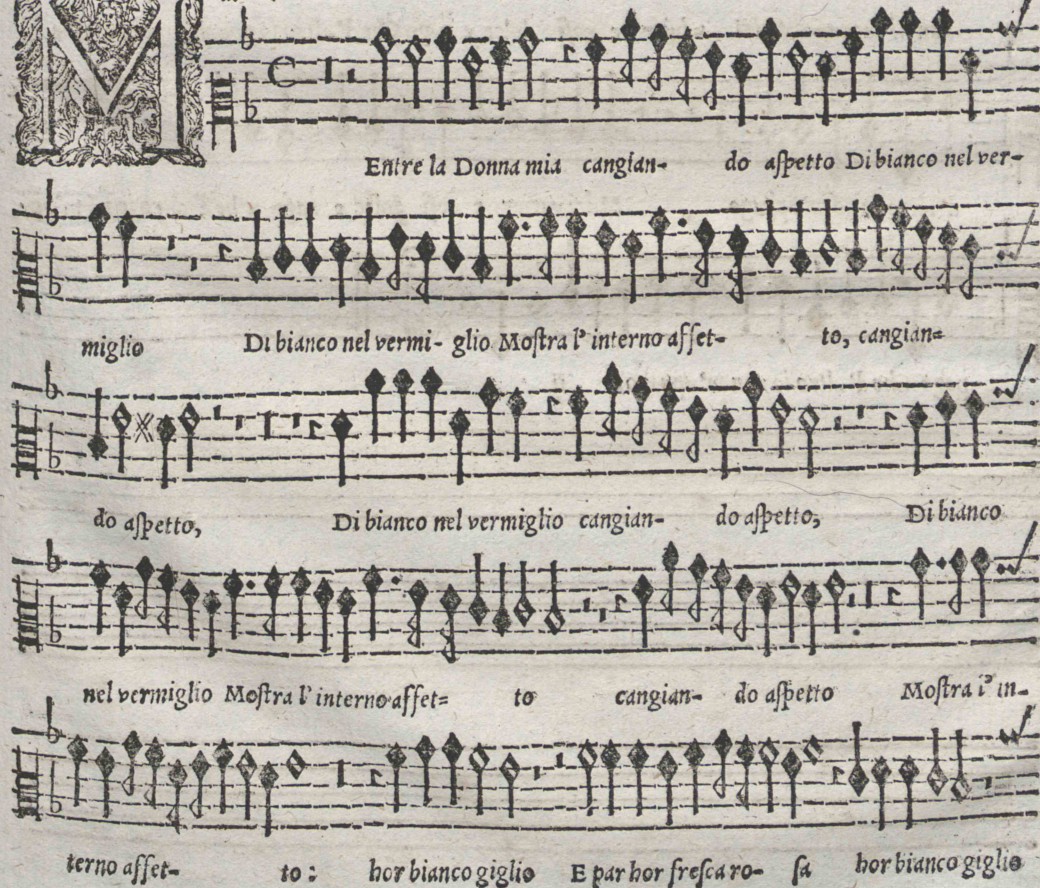 M
Entre la Donna mia cangian- do aſpetto Di bianco nel ver-
miglio Di bianco nel vermi- glio Moſtra l' interno affet- to, cangian=
do aſpetto, Di bianco nel vermiglio cangian- do aſpetto, Di bianco
nel vermiglio Moſtra l' interno affet= to cangian- do aſpetto Moſtra l' in-
terno affet- to : hor bianco giglio E par hor freſca ro- ſa hor bianco giglio